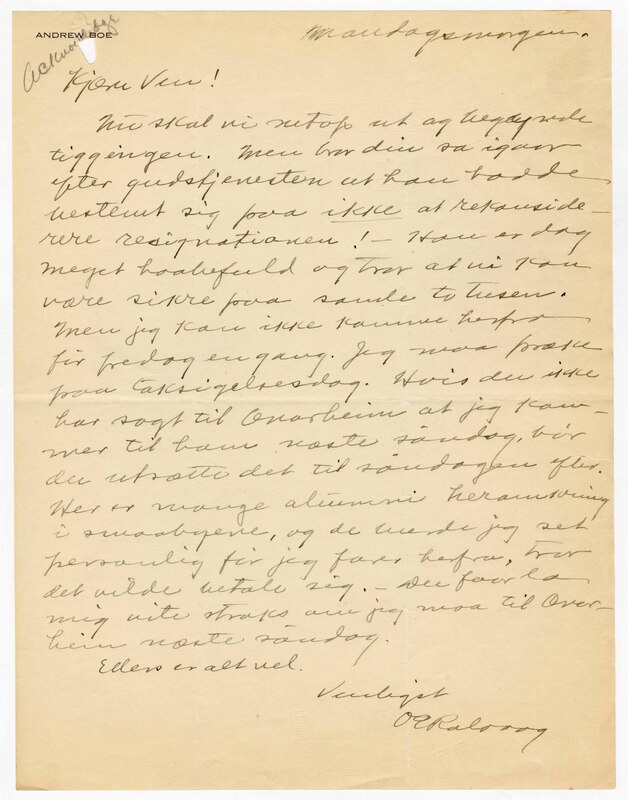 ANDREW BOE
Acknowledge
Mandagsmorgen.
Kjære Ven!
Nu skal vi netop ut og begynde
tiggingen. Men bror din sa igaar
efter gudstjenesten at han hadde
bestemt sig paa ikke at rekonside-
rere resignationen! – Han er dog
meget haabefuld og tror at vi kan
være sikre paa sande to tusen.
Men jeg kan ikke komme herfra
før fredag engang. Jeg maa præke
paa taksigelsesdag. Hvis du ikke
har sagt til Overheim at jeg kom-
mer til ham næste søndag, bør
du utsætte det til søndagen efter.
Her er mange alumni heromkring
i smaabyene, og de burde jeg set
personlig før jeg farer herfra, tror
det vilde betale sig. – Du faar la
mig vite straks om jeg maa til Over-
heim næste søndag.
Ellers er alt vel.
Venligst
OERolvaag